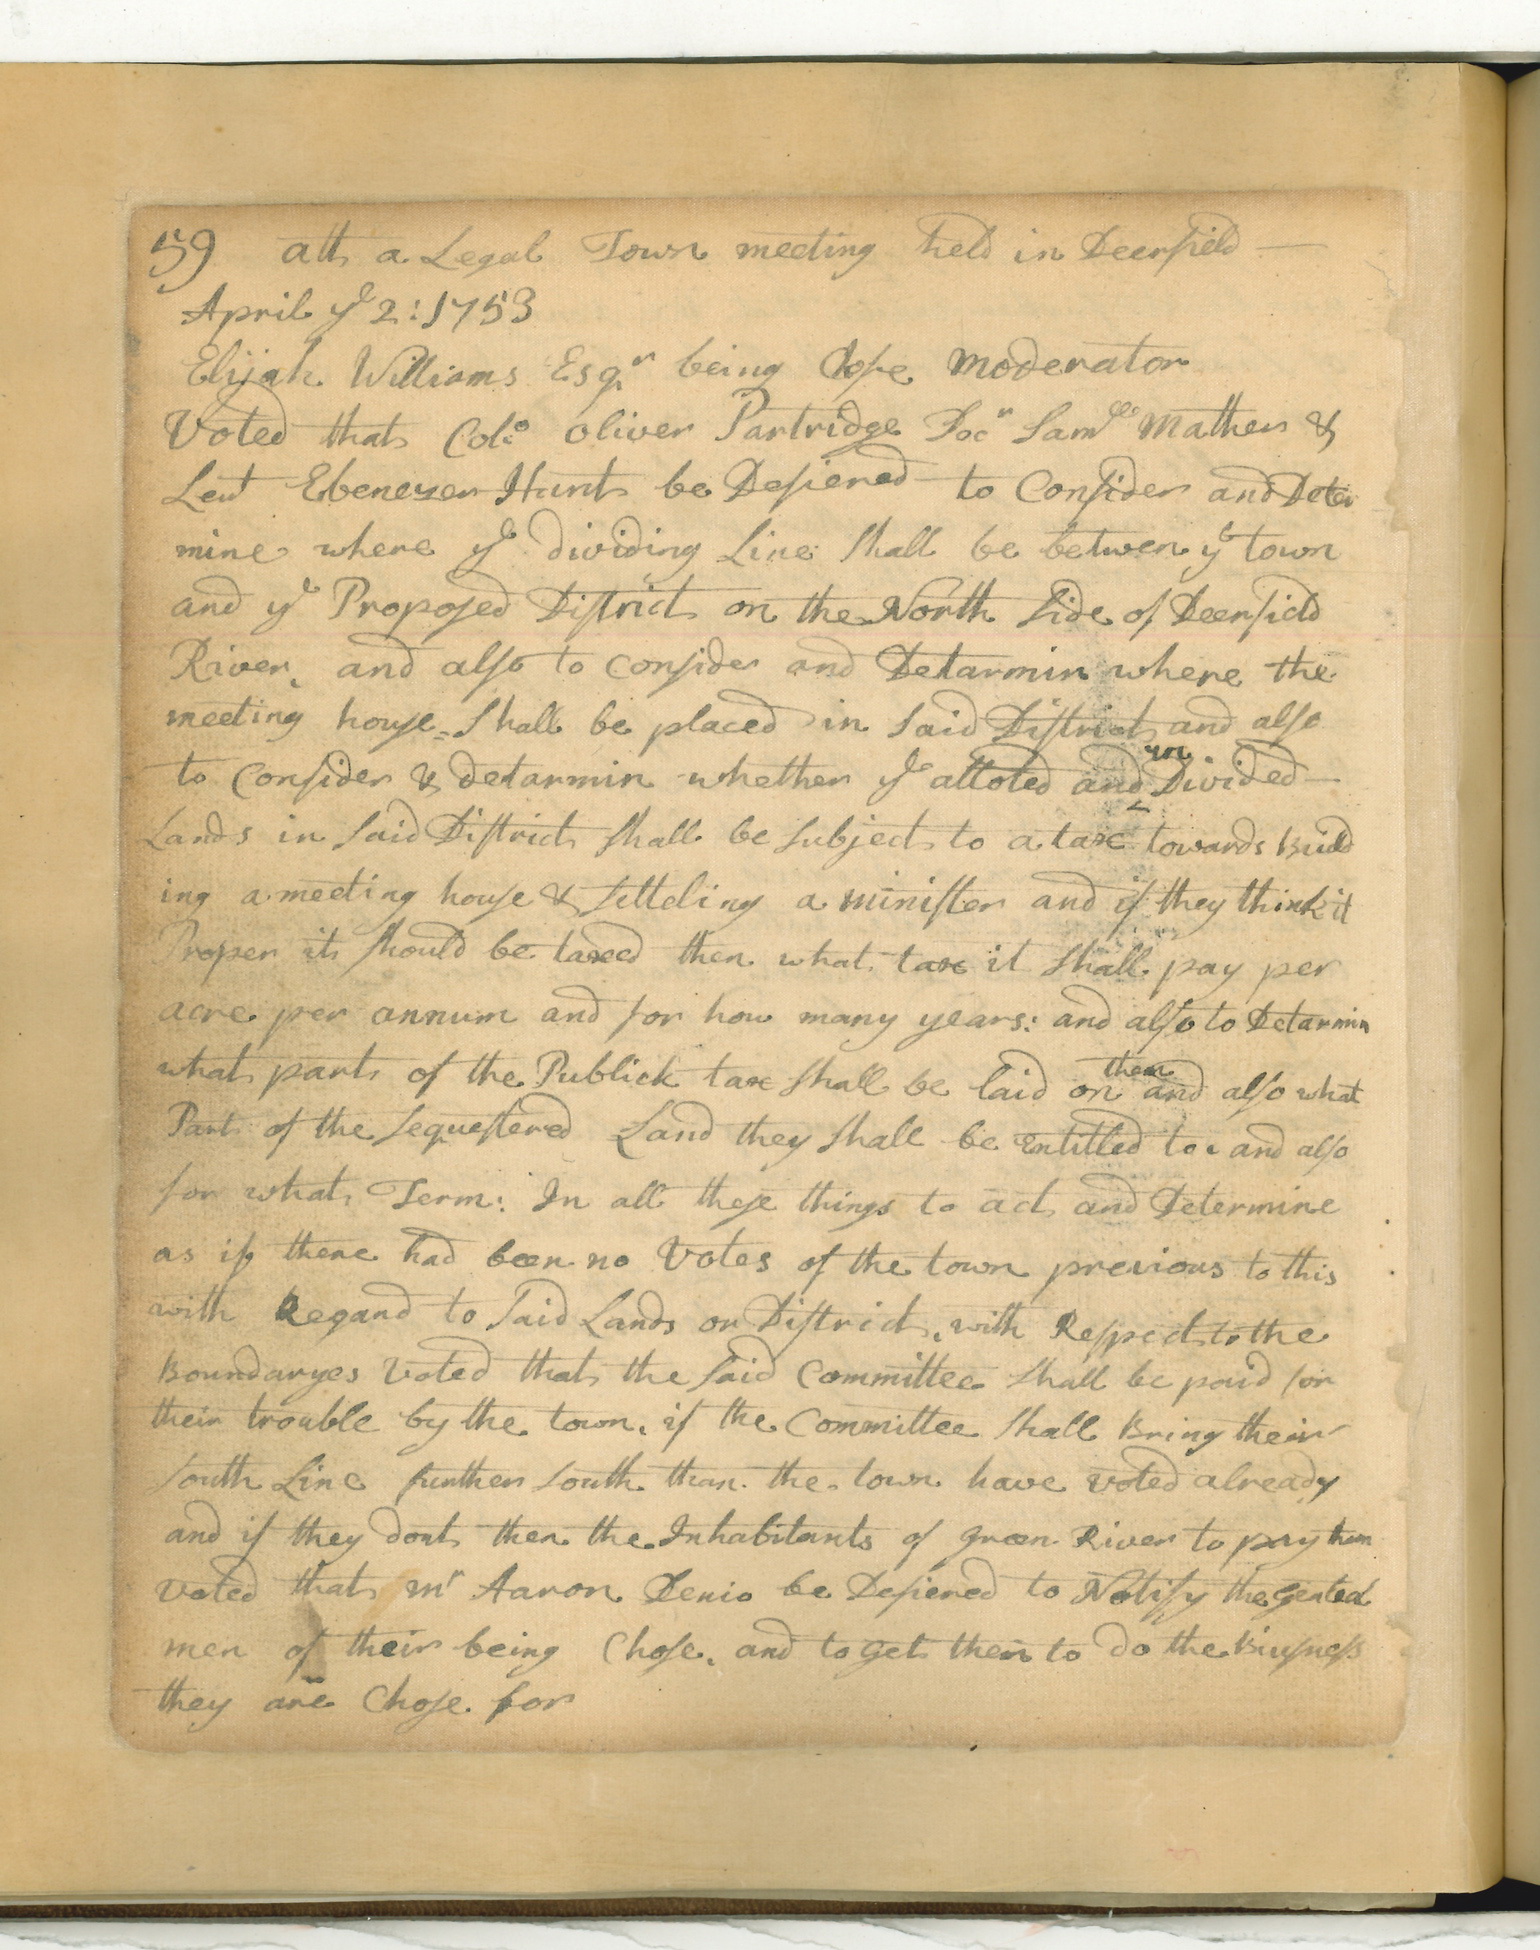 59 att a Legal Town meeting held in Deerfield —
April ye 2: 1753
Elijah Williams Esqr being Chose moderator
Voted that Colo Oliver Partridge Docr Samll Mather &
Leut Ebenezer Hunt be Desiered to Consider and Deter
mine where ye dividing Line Shall be betwen ye town
and ye Proposed District on the North Side of Deerfield
River, and also to consider and Detarmin where the
meeting house Shall be placed in Said District and also
to Consider & detarmin whether ye alloted and un Divided —
Lands in Said District Shall be Subject to a tax towards Build
ing a meeting house & Setteling a minister and if they think it
Proper it should be taxed then what tax it Shall pay per
acre per annum and for how many years: and also to Detarmin
what part of the Publick tax Shall be laid on them and also what
Part of the Sequestered Land they Shall be entitled to and also
for what Term: In all these things to act and Determine
as if there had been no Votes of the town previous to this
with Regard to Said Lands or District, with Respect to the
Boundaryes Voted that the Said Committee Shall be paid for
their trouble by the town, if the Committee Shall Bring their
South Line further South than the town have voted already
and if they dont then the Inhabitants of Green River to pay them
Voted that mr Aaron Denio be Desiered to Notify the Gentel
men of their being Chose, and to get them to do the Buisness
they are Chose for